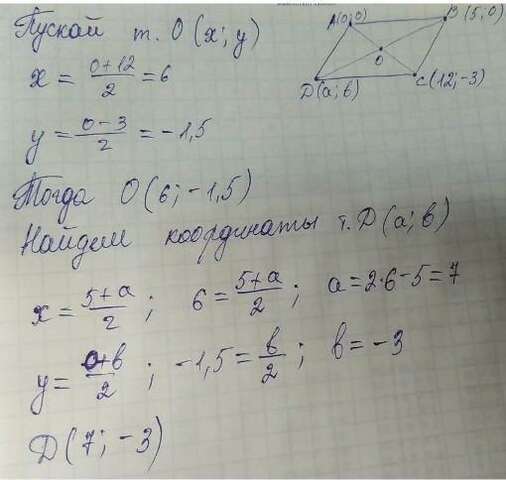 Пускай т. О (x; y)
x = (0+12)/2 = 6
y = (0-3)/2 = -1,5
A(0; 0)
B (5; 0)
O
D(a; b)
C(12; -3)
Тогда О(6; -1,5)
Найдем координаты т. D (a; b)
x = (5+a)/2 ; 6 = (5+a)/2 ; a = 2·6-5=7
y = (0+b)/2 ; -1,5 = b/2 ; b = -3
D(7; -3)